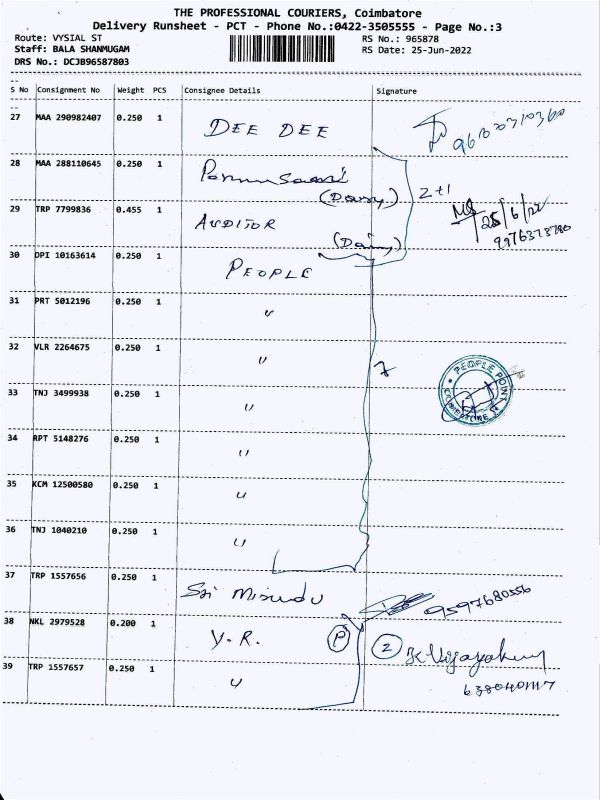 THE PROFESSIONAL COURIERS, Coimbatore
Delivery Runsheet - PCT - Phone No.:0422-3505555 - Page No.:3
Route: VYSIAL ST RS No.: 965878
Staff: BALA SHANMUGAM RS Date: 25-Jun-2022
DRS No.: DCJB96587803
S No Consignment No Weight PCS Consignee Details Signature
27 MAA 290982407 0.250 1 DEE DEE
28 MAA 288110645 0.250 1 2+1
29 TRP 7799836 0.455 1 AUDITOR 25/6/22
30 DPI 10163614 0.250 1 PEOPLE
31 PRT 5012196 0.250 1 "
32 VLR 2264675 0.250 1 " 7
33 TNJ 3499938 0.250 1 " PEOPLE POINT COIMBATORE
34 RPT 5148276 0.250 1 "
35 KCM 12500580 0.250 1 "
36 TNJ 1040210 0.250 1 "
37 TRP 1557656 0.250 1 Sri 9597680556
38 NKL 2979528 0.200 1 Y.R. P 2
39 TRP 1557657 0.250 1 "